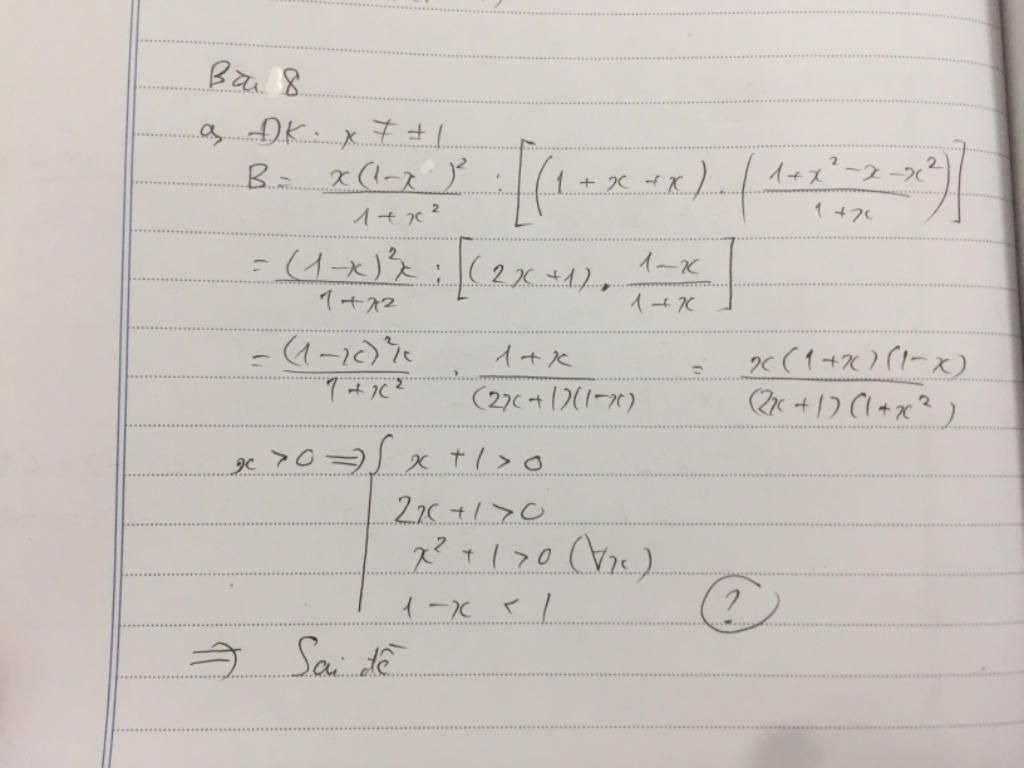 Bài 8
a, ĐK: x ≠ ±1
B = x(1-x)² / 1+x² : [(1+x+x) . (1+x²-x-x² / 1+x)]
= (1-x)²x / 1+x² : [(2x+1) . 1-x / 1+x]
= (1-x)²x / 1+x² . 1+x / (2x+1)(1-x) = x(1+x)(1-x) / (2x+1)(1+x²)
x > 0 ⇒ { x + 1 > 0
2x + 1 > 0
x² + 1 > 0 (∀x)
1 - x < 1 ?
⇒ Sai đề